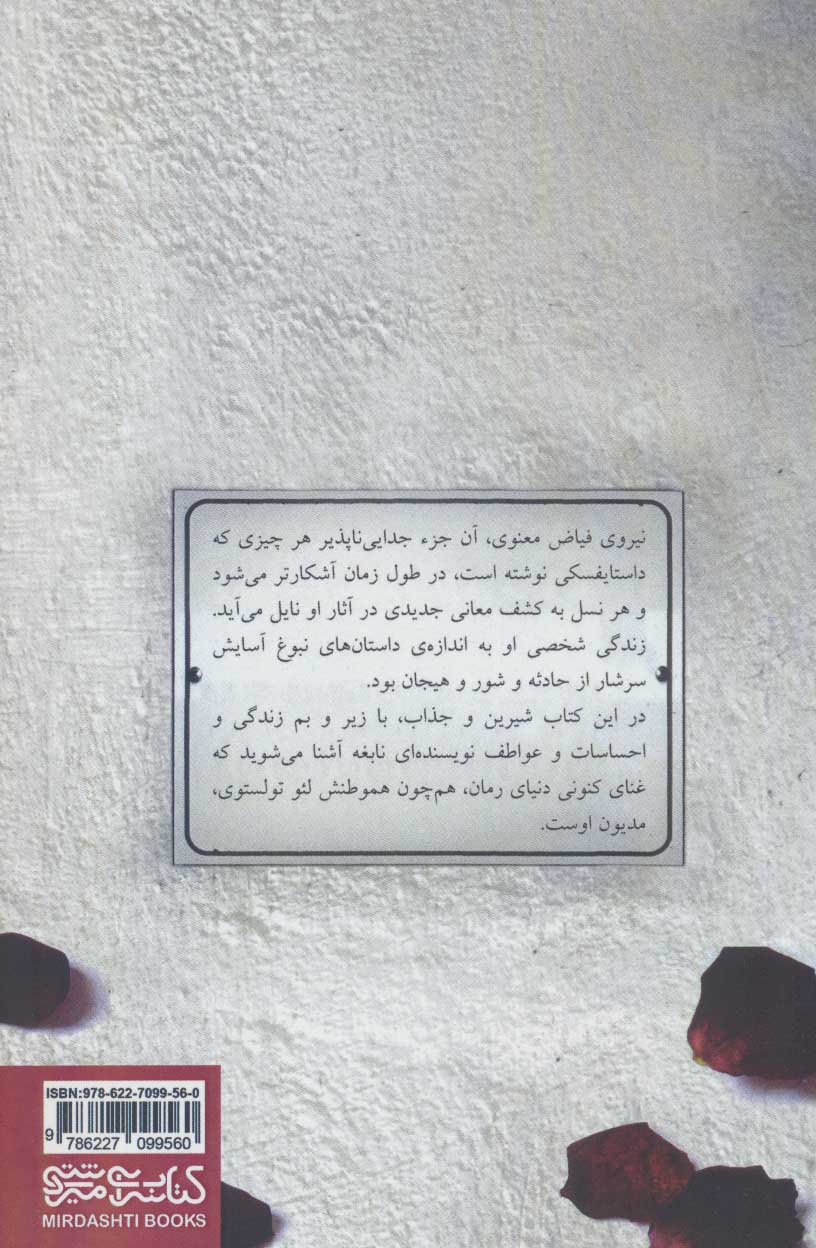 نیروی فیاض معنوی، آن جزء جدایی‌ناپذیر هر چیزی که
داستایفسکی نوشته است، در طول زمان آشکارتر می‌شود
و هر نسل به کشف معانی جدیدی در آثار او نایل می‌آید.
زندگی شخصی او به اندازه‌ی داستان‌های نبوغ آسایش
سرشار از حادثه و شور و هیجان بود.
در این کتاب شیرین و جذاب، با زیر و بم زندگی و
احساسات و عواطف نویسنده‌ای نابغه آشنا می‌شوید که
غنای کنونی دنیای رمان، هم‌چون هموطنش لئو تولستوی،
مدیون اوست.
ISBN:978-622-7099-56-0
9 786227 099560
کتابسرای میردشتی
MIRDASHTI BOOKS